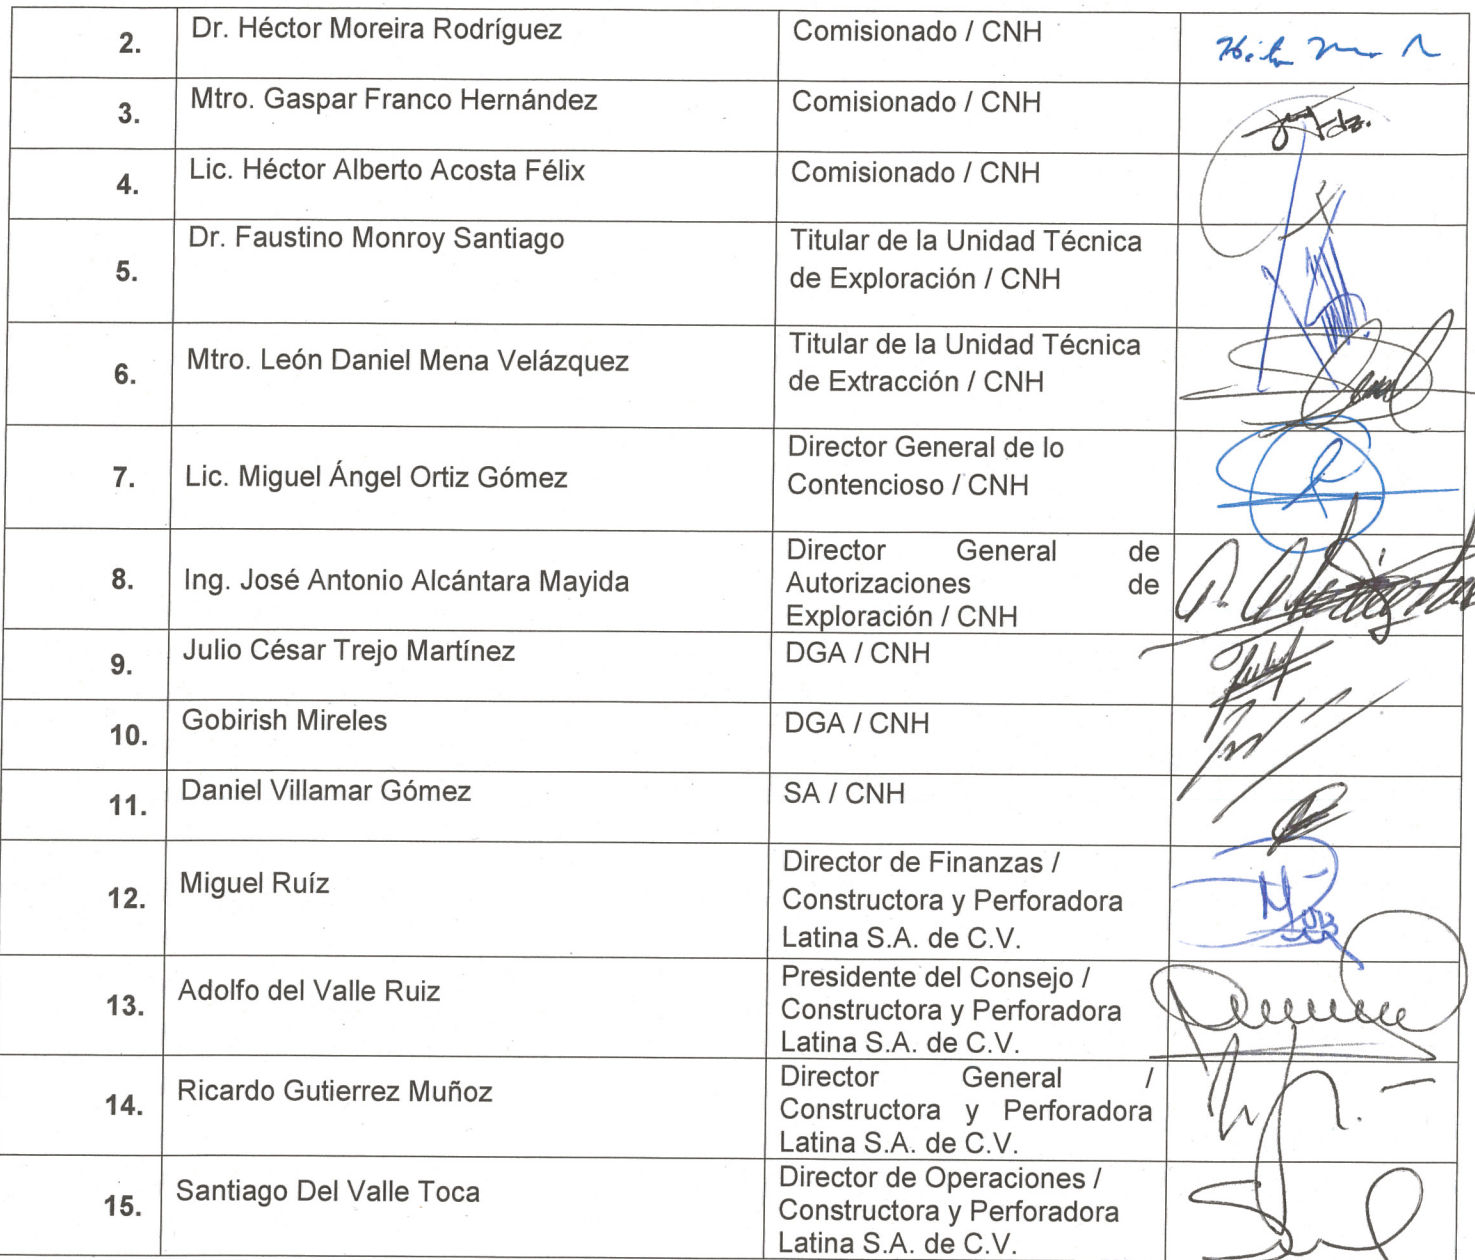 2. Dr. Héctor Moreira Rodríguez Comisionado / CNH
3. Mtro. Gaspar Franco Hernández Comisionado / CNH
4. Lic. Héctor Alberto Acosta Félix Comisionado / CNH
5. Dr. Faustino Monroy Santiago Titular de la Unidad Técnica
de Exploración / CNH
6. Mtro. León Daniel Mena Velázquez Titular de la Unidad Técnica
de Extracción / CNH
7. Lic. Miguel Ángel Ortiz Gómez Director General de lo
Contencioso / CNH
8. Ing. José Antonio Alcántara Mayida Director General de
Autorizaciones de
Exploración / CNH
9. Julio César Trejo Martínez DGA / CNH
10. Gobirish Mireles DGA / CNH
11. Daniel Villamar Gómez SA / CNH
12. Miguel Ruíz Director de Finanzas /
Constructora y Perforadora
Latina S.A. de C.V.
13. Adolfo del Valle Ruiz Presidente del Consejo /
Constructora y Perforadora
Latina S.A. de C.V.
14. Ricardo Gutierrez Muñoz Director General /
Constructora y Perforadora
Latina S.A. de C.V.
15. Santiago Del Valle Toca Director de Operaciones /
Constructora y Perforadora
Latina S.A. de C.V.